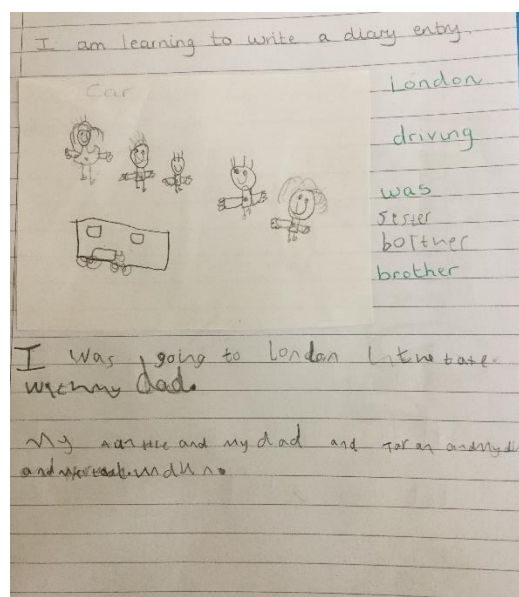 I am learning to write a diary entry.
Car
London
driving
was
sister
bortner
brother
I was going to london
with my dad.
My and my dad and and my
and